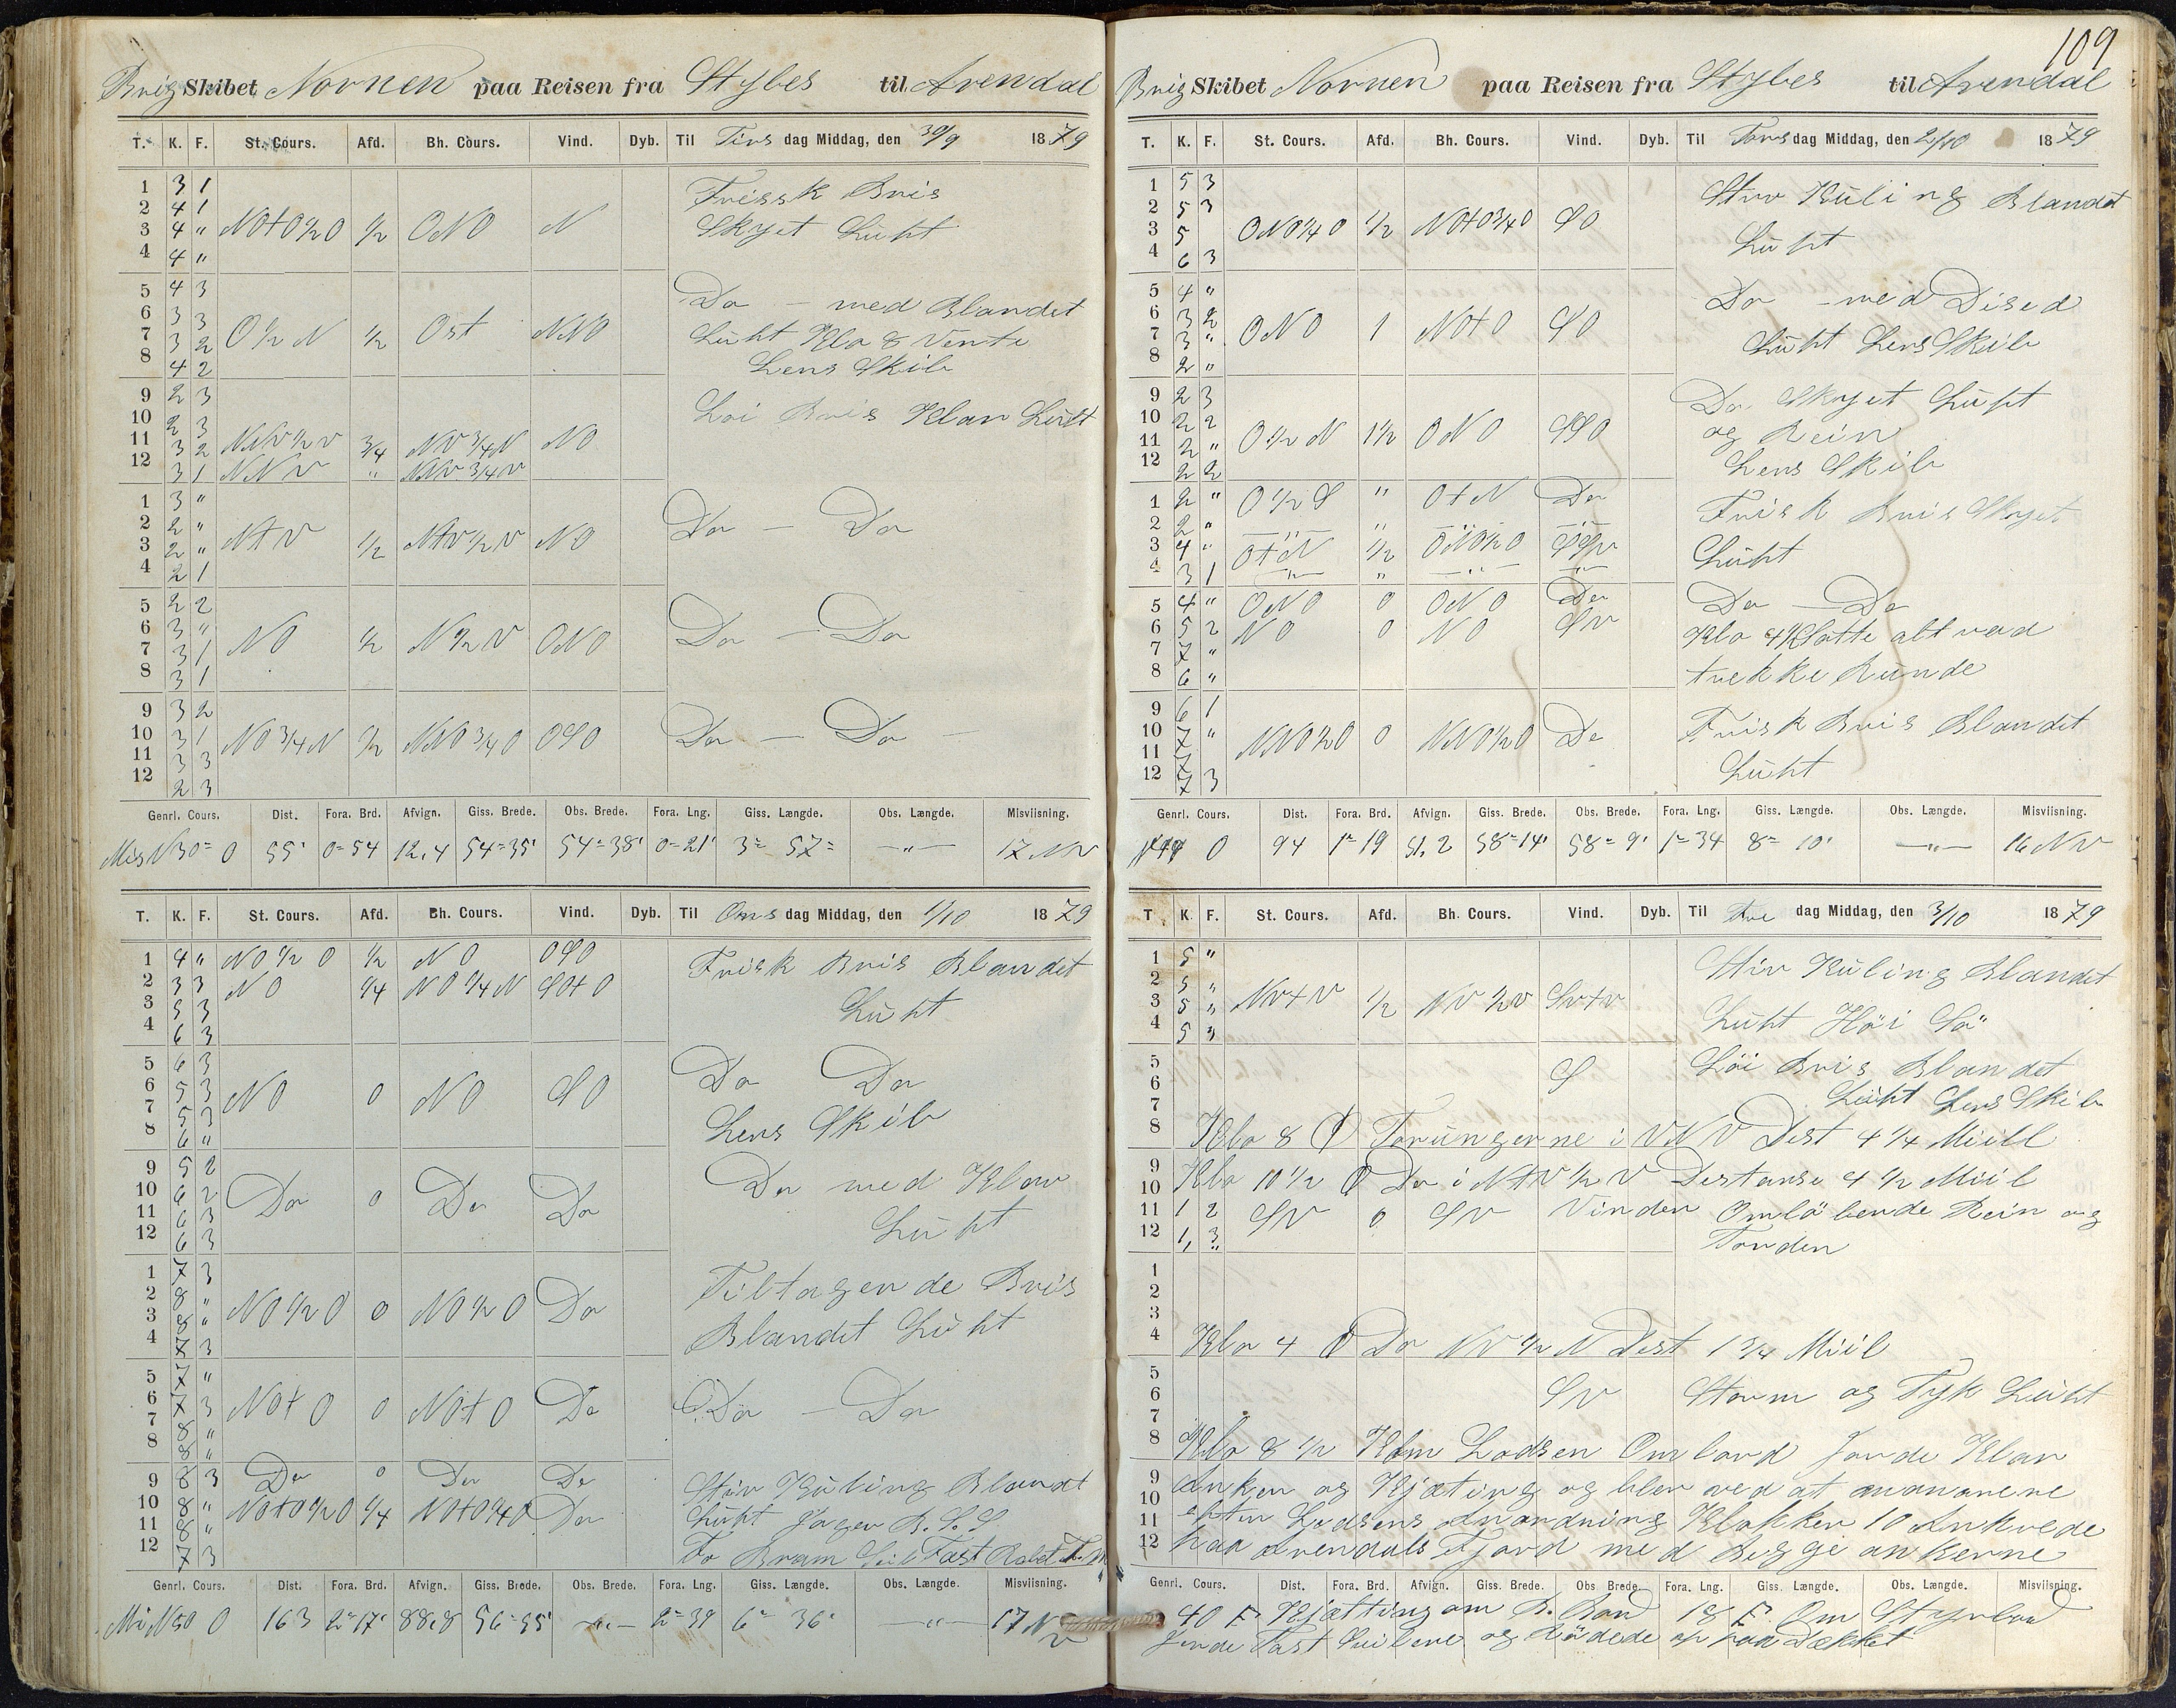 Brig Skibet Nornen paa Reisen fra Stybes til Arendal
T. K. F. St. Cours. Afd. Bh. Cours. Vind. Dyb. Til Tirs dag Middag, den 30/9 1879
1 3 1 Frissk Bris
2 4 1 NOtO½O ½ ONO N Skyet Luht
3 4 "
4 4 "
5 4 3 Do — med Blandet
6 3 3 O½N ½ Ost NNO Luht Klo 8 Vente
7 3 2 Lens Skib
8 4 2
9 2 3 Löi Bris Klar Luht
10 2 3
11 3 2 NNV½V ¾ NV¾N NO
12 3 1 NNV " NNV¾V
1 3 "
2 2 " NtV ½ NtV½V NO Do — Do
3 2 "
4 2 1
5 2 2
6 3 " NO ½ N½V ONO Do — Do
7 3 1
8 3 1
9 3 2
10 3 1 NO¾N ½ NNO¾O OSO Do — Do —
11 3 3
12 2 3
Genrl. Cours. Dist. Fora. Brd. Afvign. Giss. Brede. Obs. Brede. Fora. Lng. Giss. Længde. Obs. Længde. Misviisning.
Mis N30° O 55' 0=54 12,4 54=35' 54=38' 0=21' 3= 57= —"— 17 NV
T. K. F. St. Cours. Afd. Bh. Cours. Vind. Dyb. Til Ons dag Middag, den 1/10 1879
1 4 " NO½O ½ NO OSO Frisk Bris Blandet
2 3 3 NO ¼ NO¼N SOtO
3 5 3 Luht
4 6 3
5 6 3 Do Do
6 5 3 NO 0 NO SO
7 5 3 Lens Skib
8 6 "
9 5 2 Do med Klar
10 6 2 Do 0 Do Do
11 6 3 Luht
12 6 3
1 7 3 Tiltagende Bris
2 8 " NO½O 0 NO½O Do
3 8 " Blandet Luht
4 7 3
5 7 "
6 7 3 NOtO 0 NOtO Do Do — Do
7 8 "
8 8 "
9 8 3 Do 0 Do Do Stiv Kuling Blandt
10 8 " NOtO½O ¼ NOtO¼O Do Luht
11 8 "
12 7 3 For Bram Seil Fast
Genrl. Cours. Dist. Fora. Brd. Afvign. Giss. Brede. Obs. Brede. Fora. Lng. Giss. Længde. Obs. Længde. Misviisning.
Mi N50 O 163 2=17' 88,8 56=55' —"— 2=39 6= 36' —"— 17 NV
109
Brig Skibet Nornen paa Reisen fra Stybes til Arendal
T. K. F. St. Cours. Afd. Bh. Cours. Vind. Dyb. Til Tors dag Middag, den 2/10 1879
1 5 3 Stiv Kuling Blandet
2 5 3
3 5 ONO¼O ½ NOtO¾O SO Luht
4 6 3
5 4 " Do — med Dised
6 3 2 ONO 1 NOtO SO
7 3 " Luht Lens Skib
8 2 "
9 2 3 Do Skyet Luht
10 2 2 og Rein
11 2 " O½N 1½ ONO SSO
12 2 2 Lens Skib
1 2 " O½S " OtN Do Frisk Bris Skyet
2 2 " —"— " —"— —"—
3 4 " OtN ½ ONO½O SSV Luht
4 3 1 —"— " —"— —"—
5 4 " ONO 0 ONO Do Do — Do
6 5 2 NO 0 NO SV Klo 4 Satte alt vad
7 7 " trekke kunde
8 6 "
9 6 1 Frisk Bris Blandet
10 7 " NNO½O 0 NNO½O Do
11 7 Luht
12 7 3
Genrl. Cours. Dist. Fora. Brd. Afvign. Giss. Brede. Obs. Brede. Fora. Lng. Giss. Længde. Obs. Længde. Misviisning.
O 94 1=19 51,2 58=14' 58=9' 1=34 8= 10' —"— 16 NV
T K. F. St. Cours. Afd. Bh. Cours. Vind. Dyb. Til Fre dag Middag, den 3/10 1879
1 5 " Stiv Kuling Blandet
2 5 "
3 5 " NVtV ½ NV½V SVtV
4 5 " Luht Höi Sö
5 Löi Bris Blandet
6 S
7 Luht Lens Skib
8 Klo 8 Torungerne i VNV Dist 4¼ Miil
9 Klo 10½ Do i NtV½V Distanse 4½ Miil
10
11 1 2 SV 0 SV Vinden Omlöbende Rein og
12 1, 3 Torden
1
2
3
4 Klo 4 Do NV½N Dist 1¾ Miil
5
6 SV Storm og Tyk Luht
7
8 Klo 8½ Kom Lodsen Om bord Jorde Klar
9 Anker og Kjæting og blev ved at manøvrere
10
11 efter Lodsens Anordning Klokken 10 Ankrede
12 paa Arendals Fjord med begge ankerne
Genrl. Cours. Dist. Fora. Brd. Afvign. Giss. Brede. Obs Brede. Fora. Lng. Giss. Længde. Obs. Længde. Misviisning.
40 F. Kjætting om B. Bord 18 F. Om Styrbord
Jorde Fast Seilene og Rödede op paa Dækket